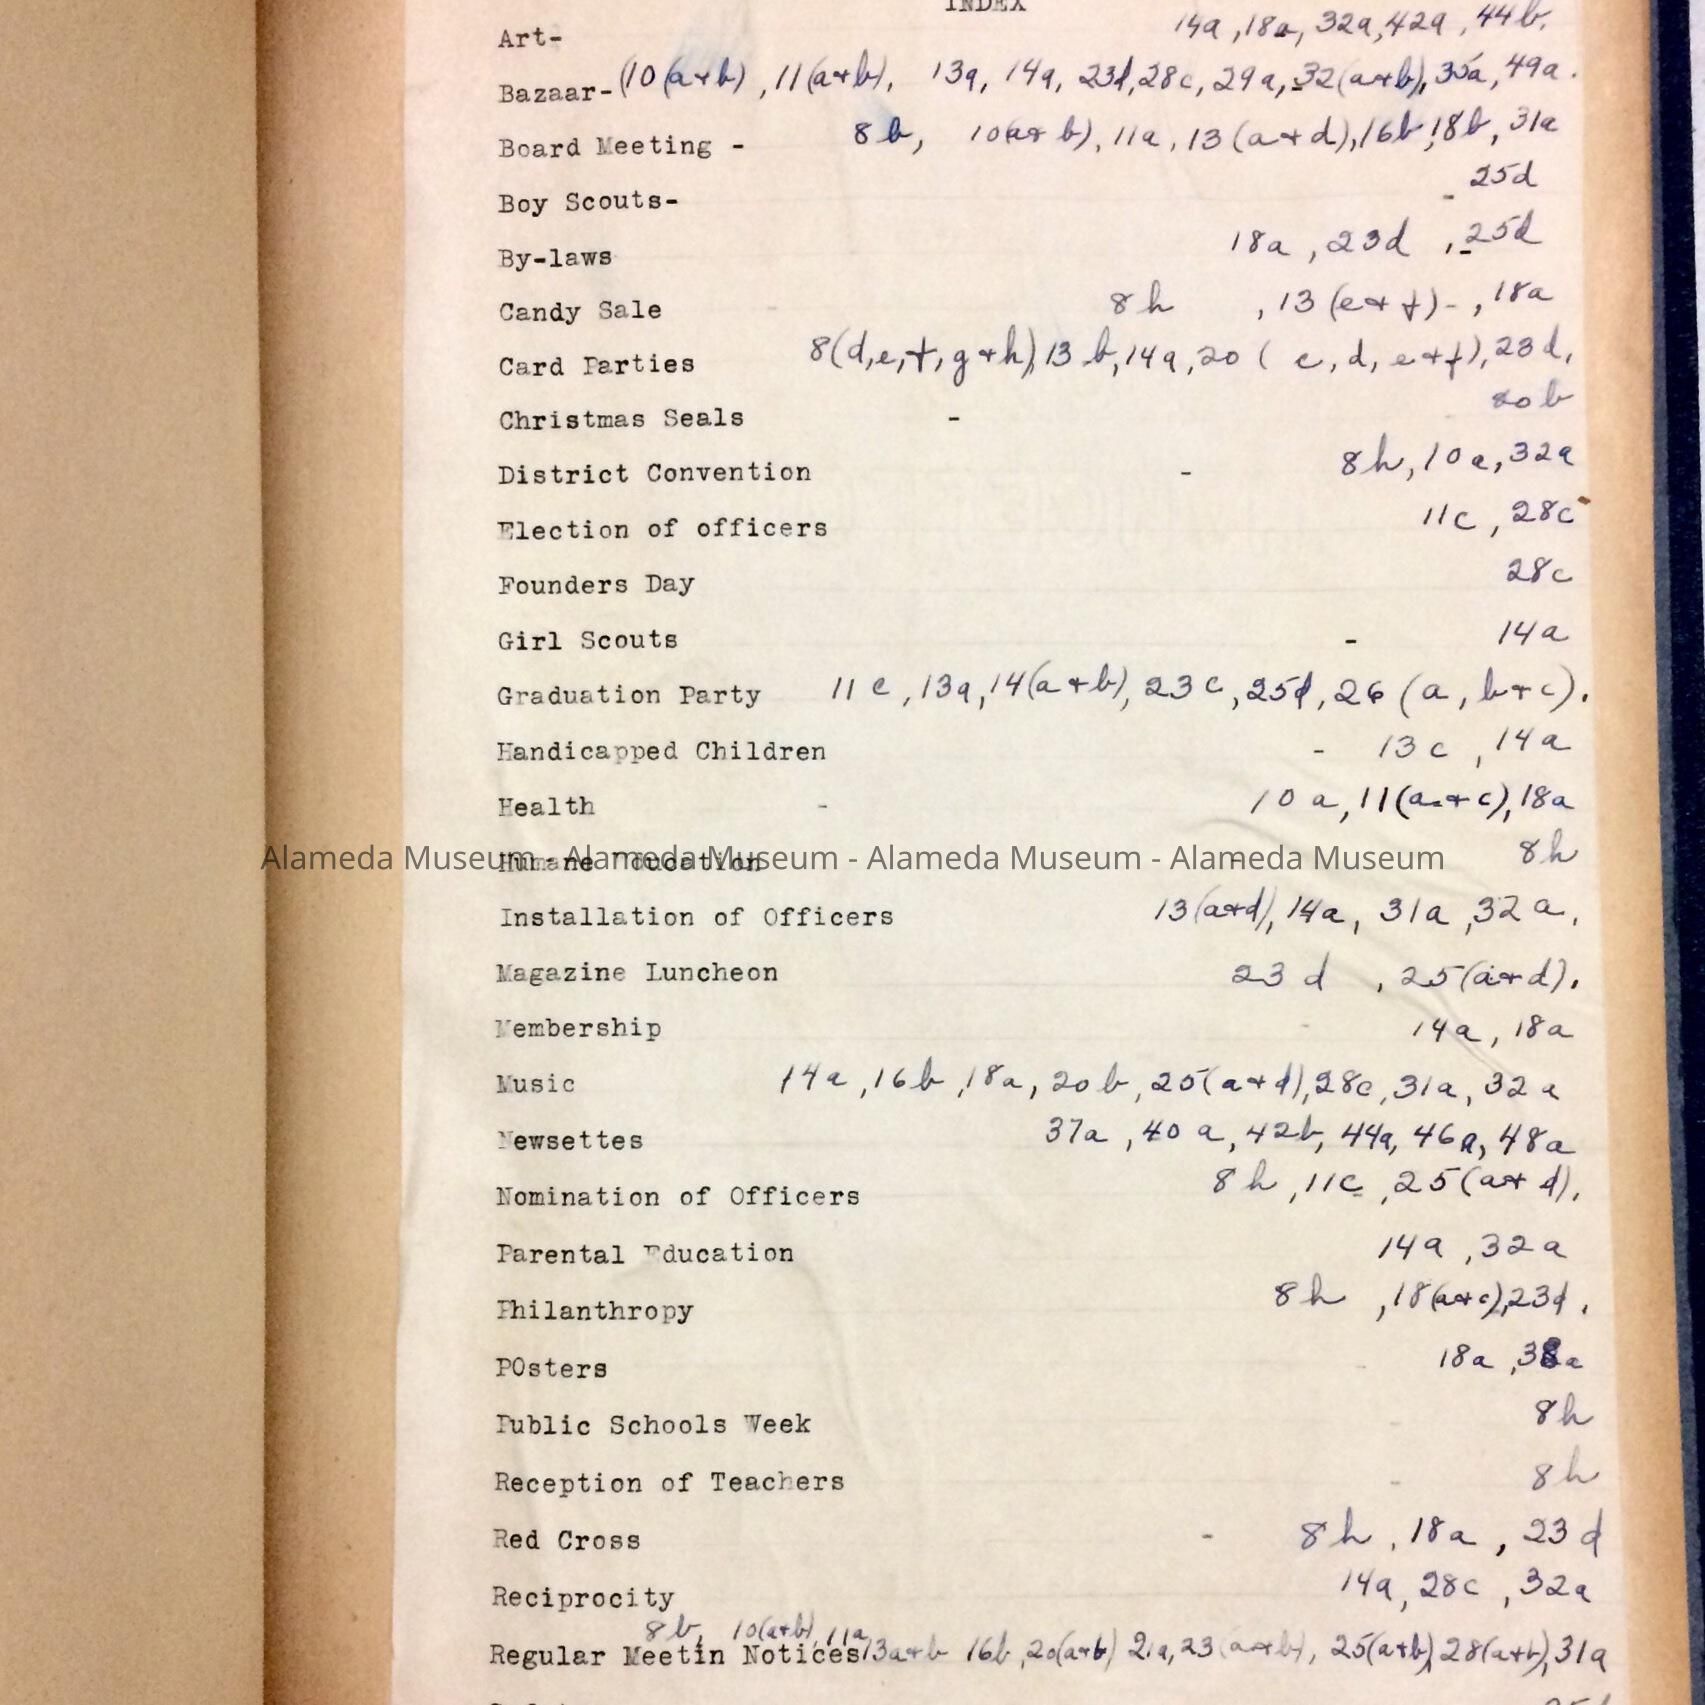 INDEX
Art- 14a, 18a, 32a, 42a, 44b.
Bazaar- (10(a+b), 11(a+b), 13a, 14a, 23d, 28c, 29a, 32(a+b), 35a, 49a.
Board Meeting - 8b, 10(a+b), 11a, 13(a+d), 16b, 18b, 31a
Boy Scouts- - 25d
By-laws 18a, 23d, 25d
Candy Sale 8h, 13(e+f)-, 18a
Card Parties 8(d,e,f,g+h) 13b, 14a, 20(c, d, e+f), 23d,
Christmas Seals - 20b
District Convention - 8h, 10a, 32a
Election of officers 11c, 28c
Founders Day 28c
Girl Scouts - 14a
Graduation Party 11c, 13a, 14(a+b), 23c, 25d, 26(a, b+c).
Handicapped Children - 13c, 14a
Health - 10a, 11(a+c), 18a
Humane Education - 8h
Alameda Museum - Alameda Museum - Alameda Museum - Alameda Museum
Installation of Officers 13(a+d), 14a, 31a, 32a.
Magazine Luncheon 23d, 25(a+d).
Membership 14a, 18a
Music 14a, 16b, 18a, 20b, 25(a+d), 28c, 31a, 32a
Newsettes 37a, 40a, 42b, 44a, 46a, 48a
Nomination of Officers 8h, 11c, 25(a+d).
Parental Education 14a, 32a
Philanthropy 8h, 18(a+c), 23d.
POsters 18a, 38a
Public Schools Week 8h
Reception of Teachers - 8h
Red Cross - 8h, 18a, 23d
Reciprocity 14a, 28c, 32a
8b, 10(a+b), 11a,
Regular Meetin Notices 13a+b 16b, 20(a+b) 21a, 23(a+b), 25(a+b), 28(a+b), 31a